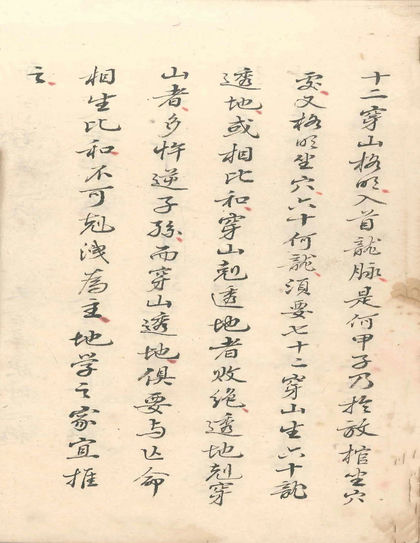 十二穿山格明入首龍脉是何甲子乃於放棺坐穴
處又格明坐穴六十何龍須要七十二穿山生六十龍
透地或相比和穿山剋透地者敗絶透地剋穿
山者多忤逆子孫而穿山透地俱要与亾命
相生比和不可剋洩為主地学之家宜推
之